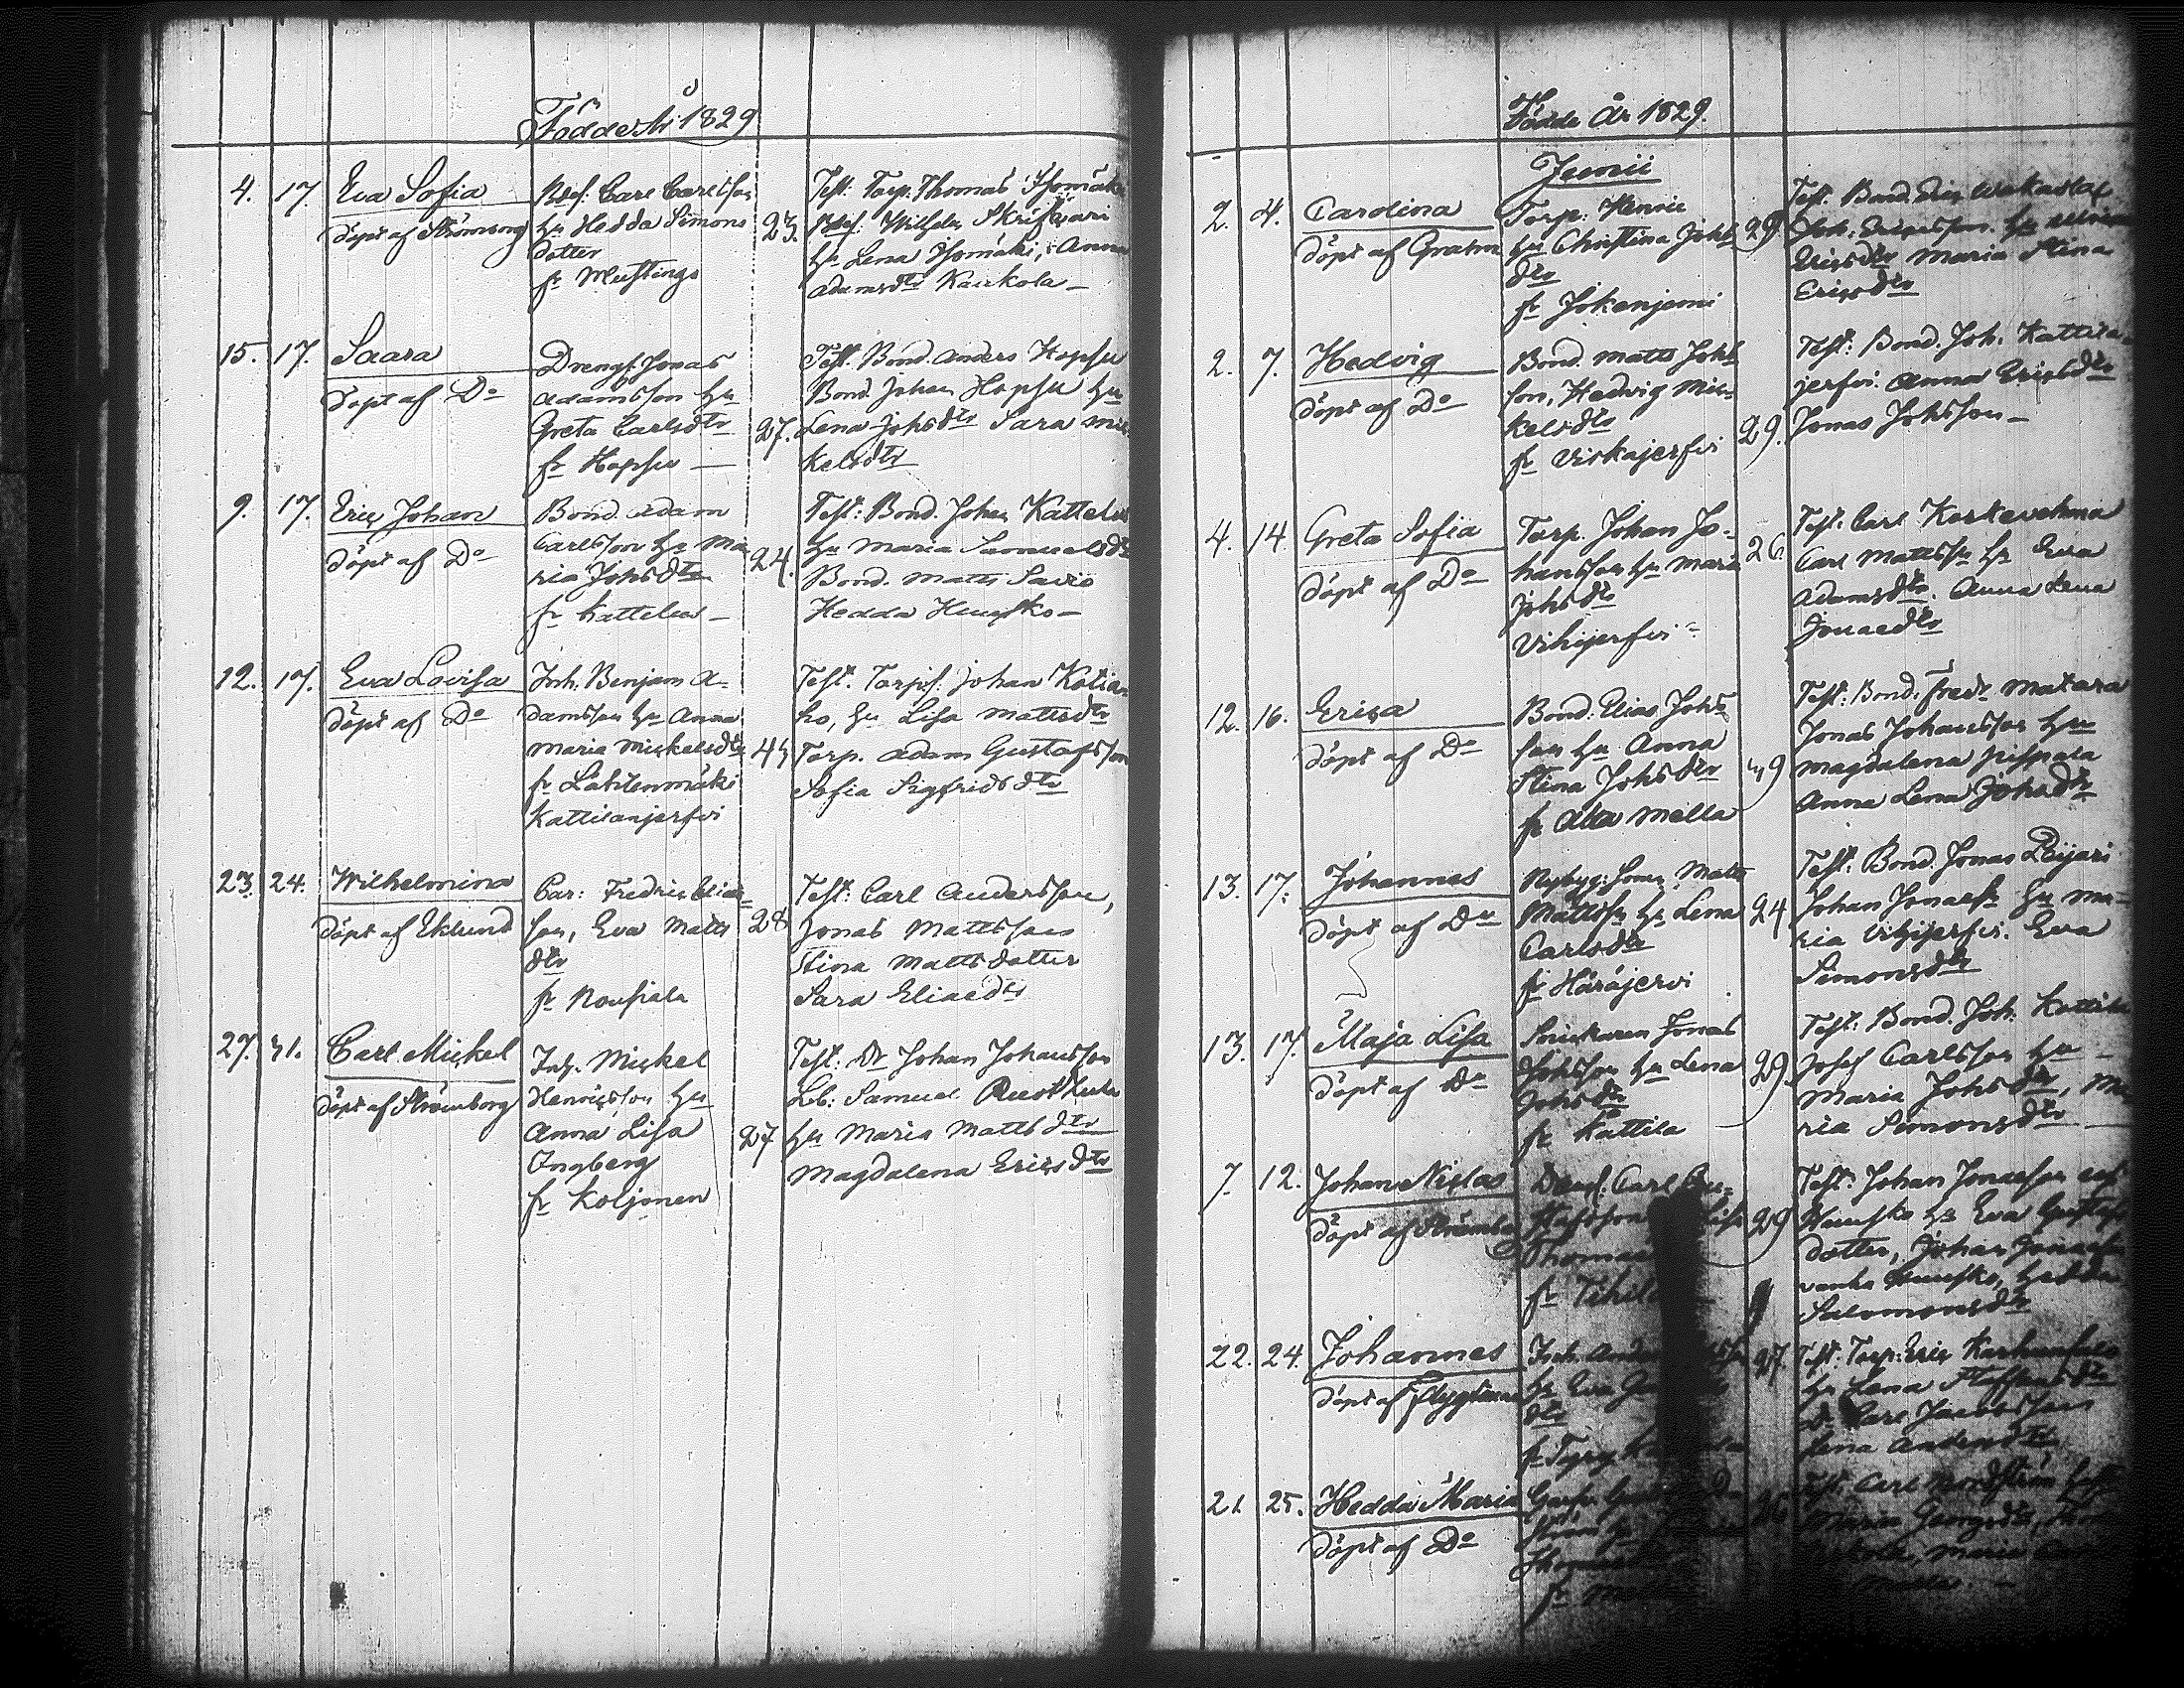 Födde År 1829
4. 17. Eva Sofia
döpt af Strömborg
Rdsf. Carl Carlsson
hu Hedda Simons
dotter
fr Mustinge
23.
Test: Torp. Thomas Isomäki
Wilhelm Skrifvari
hu Lena Isomäki, Anna
Adamsdtr Kaukola —
15. 17. Saara
döpt af Do
Drengf. Jonas
Adamsson hu
Greta Carlsdtr
fr Hapsu —
27.
Test. Bond. Anders Hapsu
Bond. Johan Hapsu hu
Lena Johsdtr Sara Mic-
kelsdtr
9. 17. Eric Johan
döpt af Do
Bond. Adam
Carlsson hu Ma
ria Johsdtr
fr Kattelus —
24.
Test: Bond. Johan Kattelus
hu Maria Samuelsdtr
Bond. Matts Savio
Hedda Hunsko —
12. 17. Eva Lovisa
döpt af Do
Inh. Benjam A-
damsson hu Anna
Maria Mickelsdtr
fr Lähtenmäki
Kattilanjerfvi
43
Test. Torpf. Johan Kotia-
ho, hu Lisa Mattsdtr
Torp. Adam Gustafsson
Sofia Sigfridsdtr
23. 24. Wilhelmina
döpt af Eklund
Car: Fredric Elias-
son, Eva Matts
dtr
fr Roufiala
28
Test: Carl Andersson,
Jonas Mattsson
Stina Mattsdotter
Sara Eliaedtr
27. 31. Carl Mickel
döpt af Strömborg
Inh. Mickel
Henricsson hu
Anna Lisa
Ingberg
fr Koljonen
27
Test: Dr Johan Johansson
Lb: Samuel
hu Maria Mattsdtr
Magdalena Ericsdtr
Födde År 1829.
Junii
2. 4. Carolina
döpt af Grahn
Torp. Henric
hu Christina Johs
dtr
fr Jokenjemi
29
Test. Bond. Eric
Joh. Ericsson. hu
Ericsdtr Maria Stina
Ericsdtr
2. 7. Hedvig
döpt af Do
Bond. Matts Johs
son, Hedvig Mic-
kelsdtr
fr Virkajerfvi
29.
Test: Bond. Joh. Kattila-
jerfvi. Anna Ericsdtr
Jonas Johsson —
4. 14. Greta Sofia
döpt af Do
Torp. Johan Jo-
hansson hu Maria
Johsdtr
Vihijerfvi
26.
Test. Carl Korkevehma
Carl Mattsson hu Eva
Adamsdtr. Anna Lena
Jonaedtr
12. 16. Erica
döpt af Do
Bond: Elias Johs
son hu Anna
Stina Johsdtr
fr Ala Mella
39
Test: Bond. Fredr Matara
Jonas Johansson hu
Magdalena Pispala
Anna Lena Johsdtr
13. 17. Johannes
döpt af Do
Nybyg: Matts
Mattsson hu Lena
Carlsdtr
fr Häräjervi
24
Test. Bond. Jonas Päijari
Johan Jonaess hu Ma-
ria Vihijerfvi. Eva
Simonsdtr
13. 17. Maja Lisa
döpt af Do
Snickaren Jonas
Johsson hu Lena
Johsdtr
fr Kattila
29.
Test: Bond. Joh. Kattila
Josef Carlsson hu
Maria Johsdtr, Ma
ria Simonsdtr
7. 12. Johan Niclas
döpt af Strömborg
Carl Gu-
stafsson Lisa
Thomae
fr
29
Test: Johan Jonaesson
Hunsko hu Eva Gustafs
dotter, Johan Jonaesson
vanha Hunsko, Hedda
Salomonsdtr
22. 24. Johannes
döpt af
Inh. Anders
hu Eva
dtr
fr
27
Test: Torp. Eric
hu Lena Staffansdtr
Dr Carl Jacobsson
Lena Andersdtr
21 25. Hedda Maria
döpt af Do
ström hu
fr
26
Test. Carl Nordström
Maria Georgsdtr,
Maria